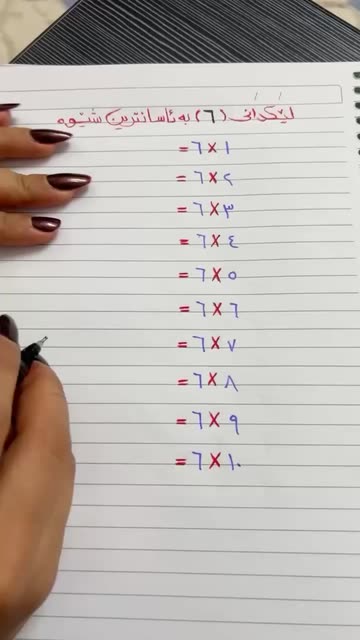 لێکدانی (٦) بە ئاسانترین شێوە
١ × ٦ =
٢ × ٦ =
٣ × ٦ =
٤ × ٦ =
٥ × ٦ =
٦ × ٦ =
٧ × ٦ =
٨ × ٦ =
٩ × ٦ =
١٠ × ٦ =